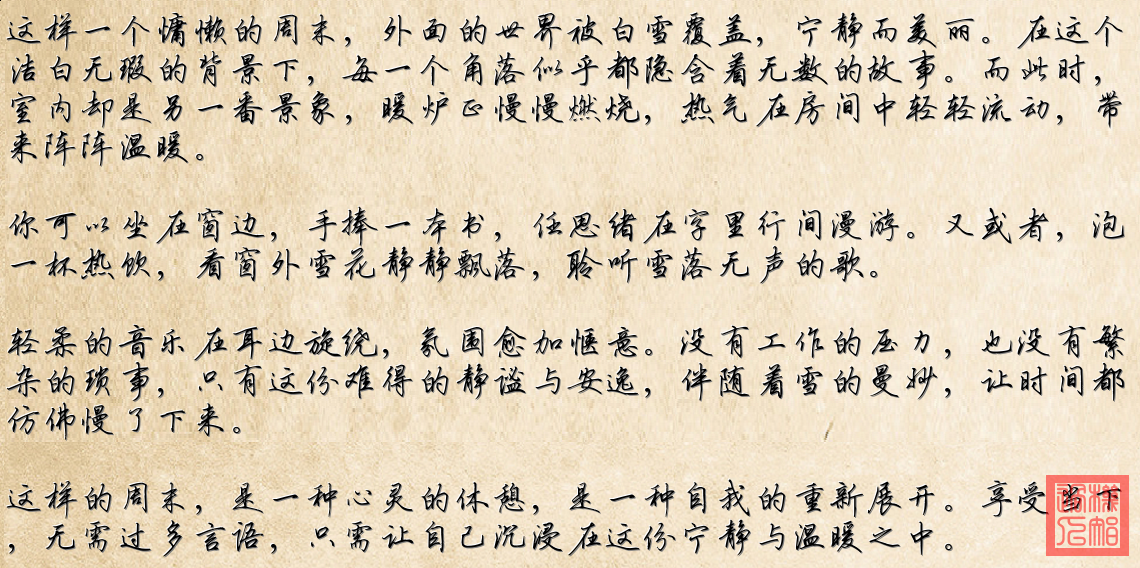 这样一个慵懒的周末，外面的世界被白雪覆盖，宁静而美丽。在这个
洁白无瑕的背景下，每一个角落似乎都隐含着无数的故事。而此时，
室内却是另一番景象，暖炉正慢慢燃烧，热气在房间中轻轻流动，带
来阵阵温暖。
你可以坐在窗边，手捧一本书，任思绪在字里行间漫游。又或者，泡
一杯热饮，看窗外雪花静静飘落，聆听雪落无声的歌。
轻柔的音乐在耳边旋绕，氛围愈加惬意。没有工作的压力，也没有繁
杂的琐事，只有这份难得的静谧与安逸，伴随着雪的曼妙，让时间都
仿佛慢了下来。
这样的周末，是一种心灵的休憩，是一种自我的重新展开。享受当下
，无需过多言语，只需让自己沉浸在这份宁静与温暖之中。